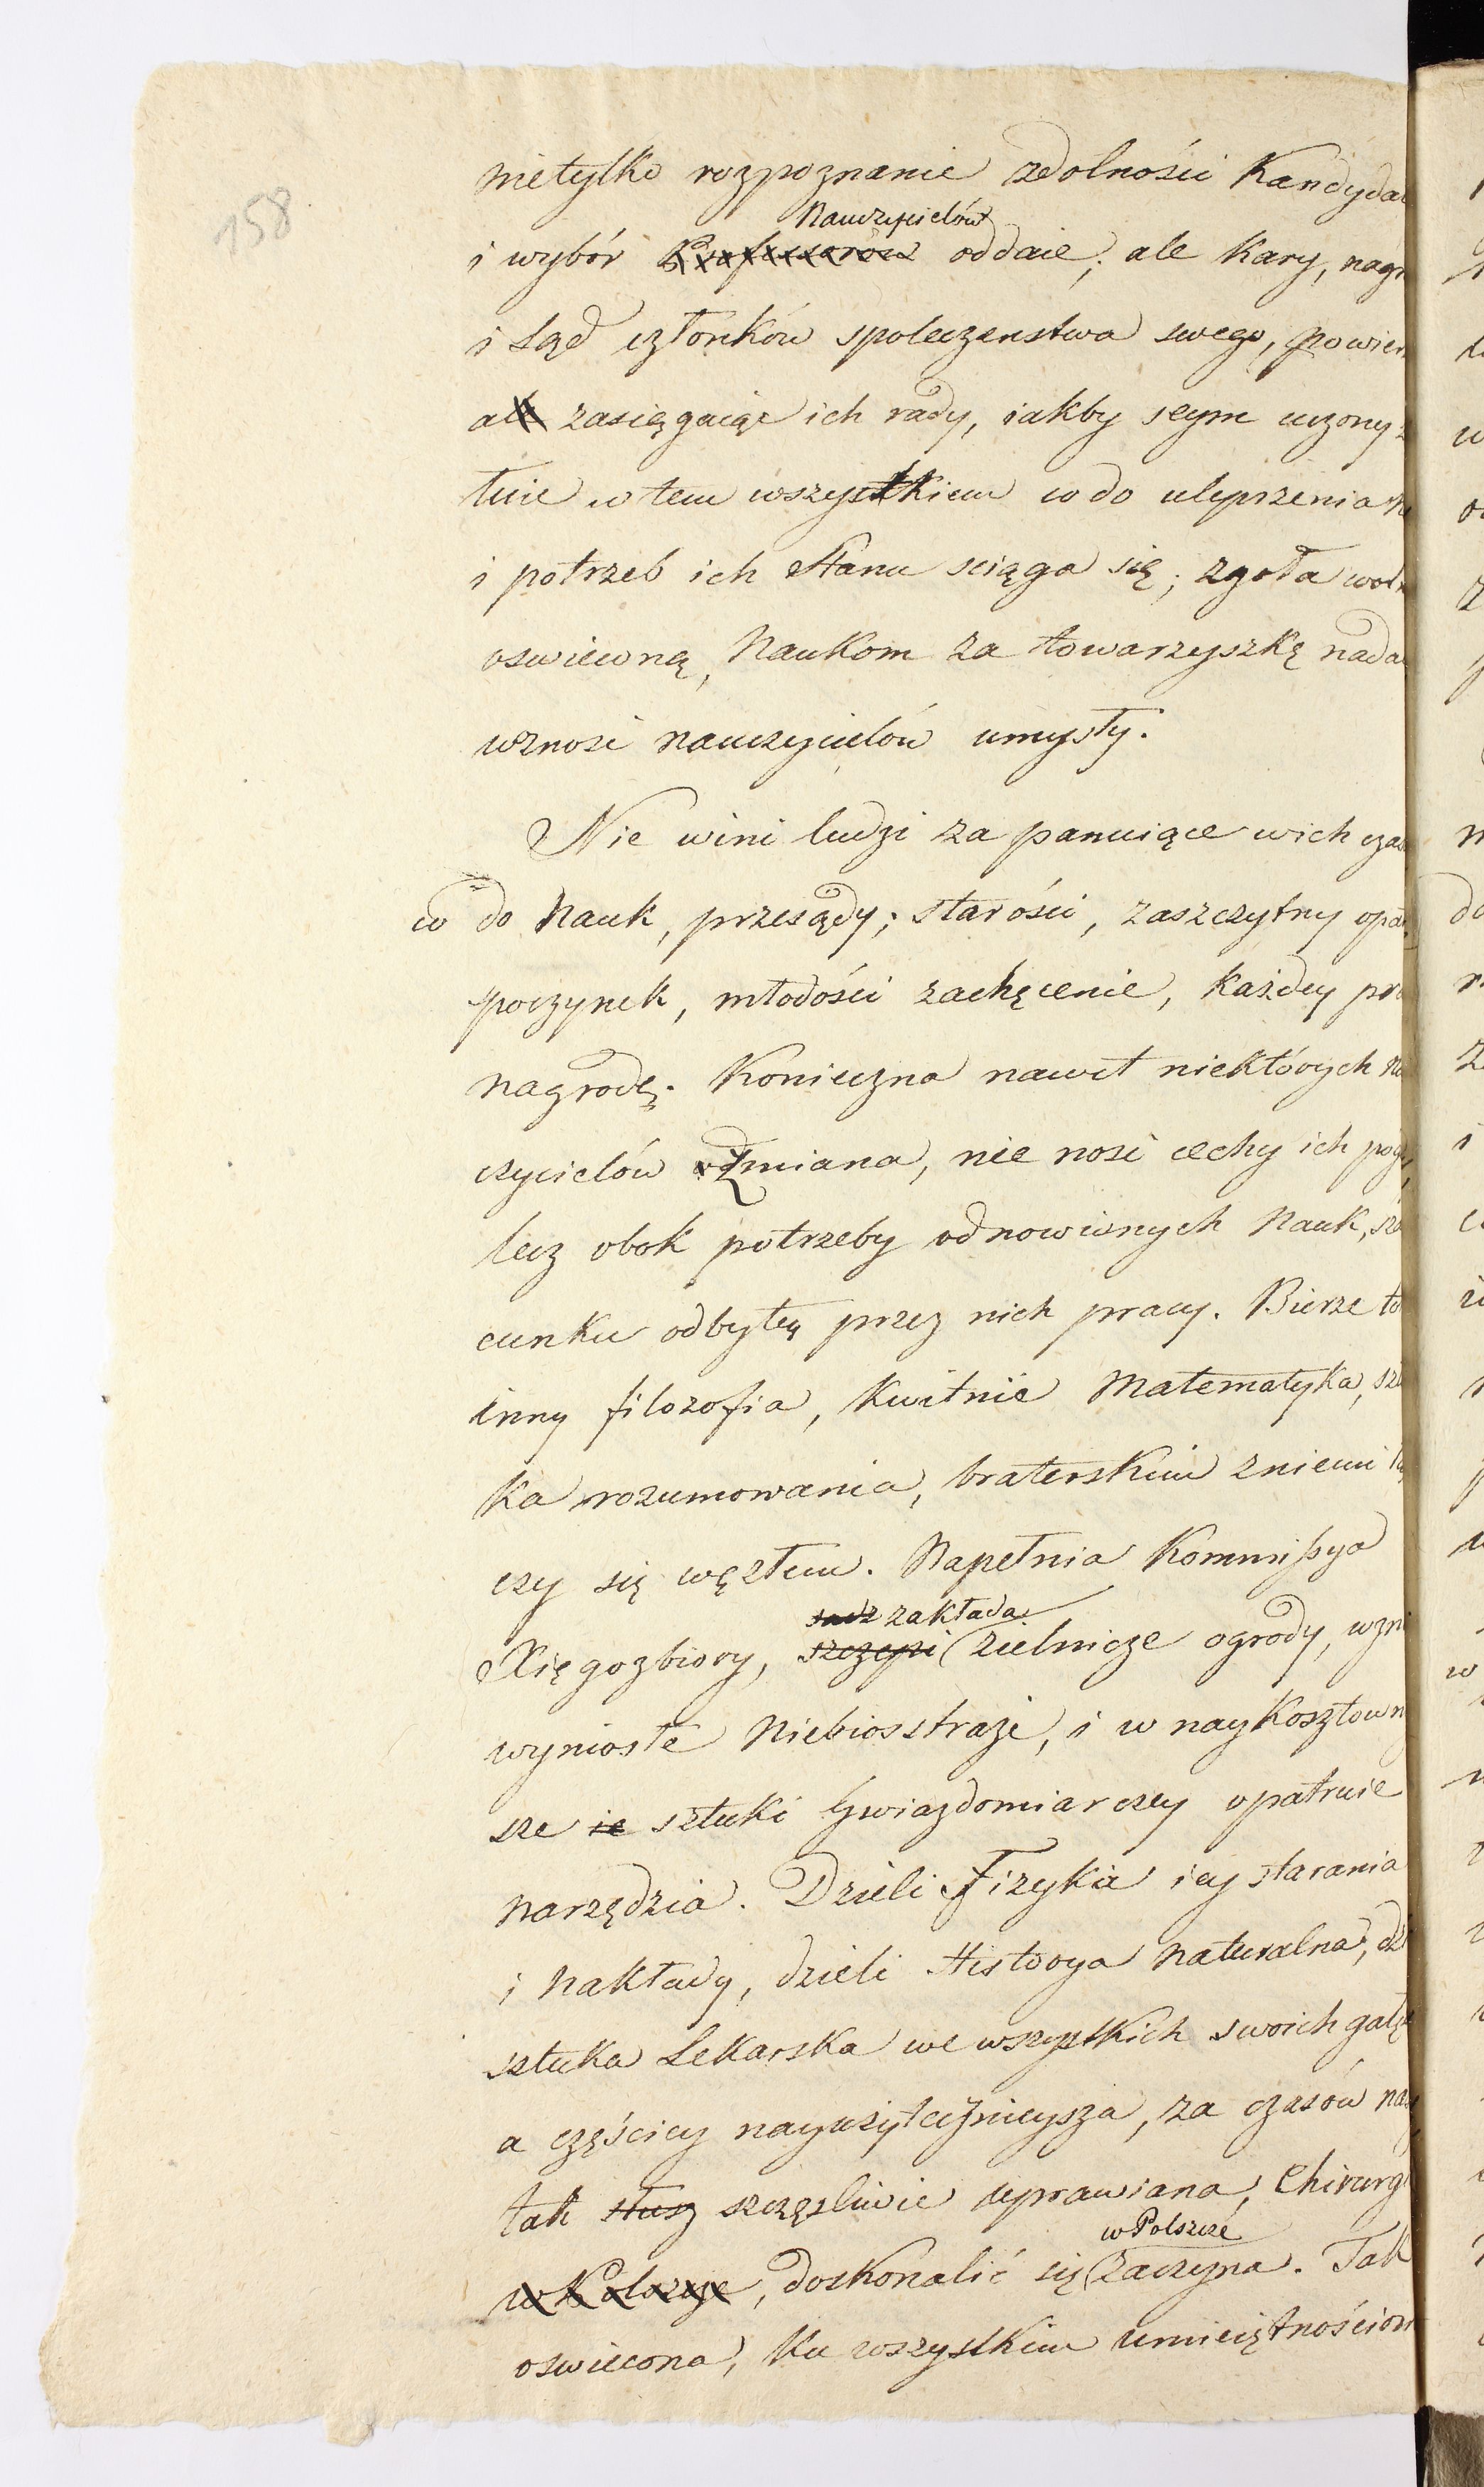 158
nietylko rozpoznanie zdolności Kandyda
Nauczycielów
i wybór Professorów oddaie; ale Kary, nagr
i Sąd członków społeczenstwa swego, powier
ale zasięgaiąc ich rady, iakby seym uczony
tuie w tem wszystkiem co do ulepszenia
i potrzeb ich Stanu sciąga się; zgoła wol
oswieconą, Naukom za towarzyszkę nada
wznosi nauczycielów umysły.
Nie wini ludzi za panuiące w ich cza
co do Nauk, przesądy; starości, zaszczytny
poczynek, młodości zachęcenie, każdey pra
nagrodę. Konieczna nawet niektórych na
czycielów odmiana, nie nosi cechy ich pog
lecz obok potrzeby odnowionych Nauk, sza
cunku odbytą przez nich pracy. Bierze to
inny filozofia, kwitnie Matematyka, szt
ka rozumowania, braterskim z niemi łą
czy się węzłem. Napełnia Kommissya
sadz zakłada
Xięgozbiory, szczepi zielnicze ogrody, wzn
wyniosłe Niebiosstraże, i w naykosztown
sze ie sztuki Gwiazdomiarczey opatruie
narzędzia. Dzieli Fizyka iey starania
i nakłady, dzieli Historya Naturalna, dzi
sztuka Lekarska we wszystkich swoich gałę
a częściey nayużytecznieysza, za czasów na
tak słusz szczęsliwie uprawiana, Chirurg
w Polszcze
w Polszcze, doskonalić się zaczyna. Tak
oswiecona, ku wszystkim umieiętnościom